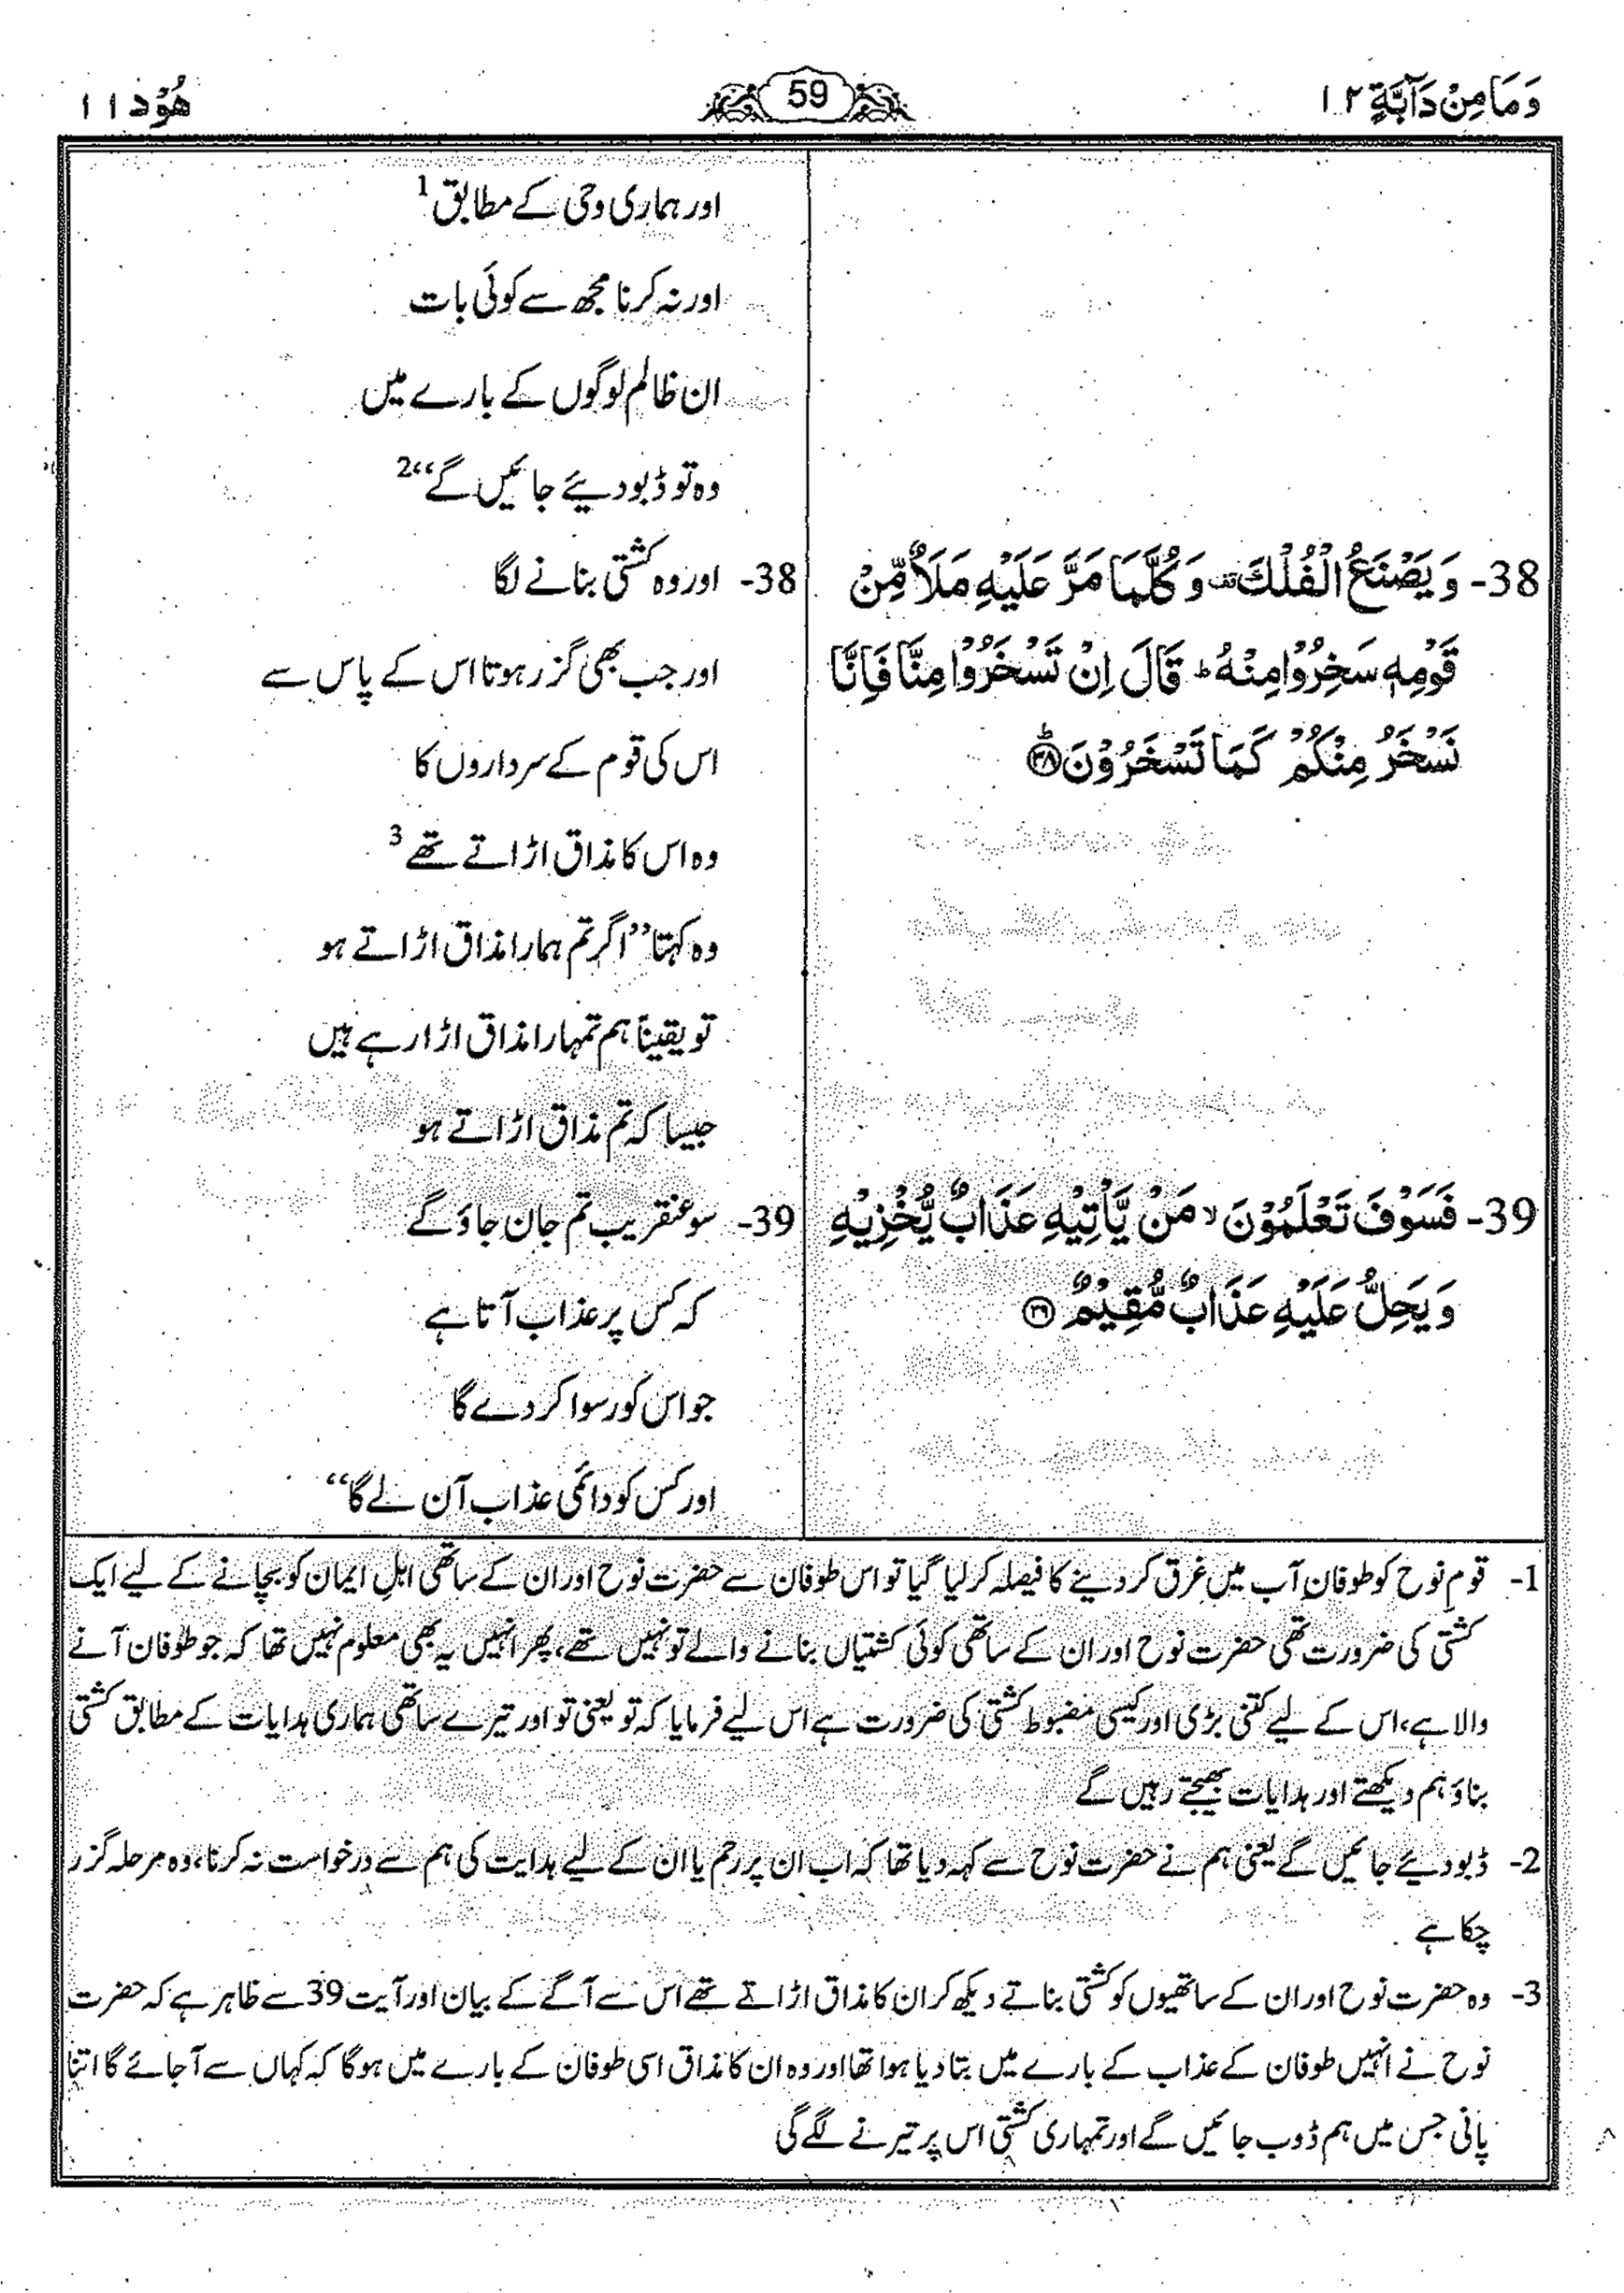 وَمَا مِنْ دَآبَّةٍ ۱۲
59
هُوْد ۱۱
اور ہماری وحی کے مطابق 1
اور نہ کرنا مجھ سے کوئی بات
ان ظالم لوگوں کے بارے میں
وہ تو ڈبو دیئے جائیں گے‘‘ 2
38- وَيَصْنَعُ الْفُلْكَ ۣ وَكُلَّمَا مَرَّ عَلَيْهِ مَلَاٌ مِّنْ
قَوْمِهٖ سَخِرُوْا مِنْهُ ؕ قَالَ اِنْ تَسْخَرُوْا مِنَّا فَاِنَّا
نَسْخَرُ مِنْكُمْ كَمَا تَسْخَرُوْنَ ؕ ﴿۳۸﴾
38- اور وہ کشتی بنانے لگا
اور جب بھی گزر ہوتا اس کے پاس سے
اس کی قوم کے سرداروں کا
وہ اس کا مذاق اڑاتے تھے 3
وہ کہتا ’’اگر تم ہمارا مذاق اڑاتے ہو
تو یقیناً ہم تمہارا مذاق اڑا رہے ہیں
جیسا کہ تم مذاق اڑاتے ہو
39- فَسَوْفَ تَعْلَمُوْنَ ۙ مَنْ يَّاْتِيْهِ عَذَابٌ يُّخْزِيْهِ
وَيَحِلُّ عَلَيْهِ عَذَابٌ مُّقِيْمٌ ﴿۳۹﴾
39- سو عنقریب تم جان جاؤ گے
کہ کس پر عذاب آتا ہے
جو اس کو رسوا کر دے گا
اور کس کو دائمی عذاب آن لے گا‘‘
1- قومِ نوح کو طوفانِ آب میں غرق کر دینے کا فیصلہ کر لیا گیا تو اس طوفان سے حضرت نوح اور ان کے ساتھی اہلِ ایمان کو بچانے کے لیے ایک
کشتی کی ضرورت تھی حضرت نوح اور ان کے ساتھی کوئی کشتیاں بنانے والے تو نہیں تھے، پھر انہیں یہ بھی معلوم نہیں تھا کہ جو طوفان آنے
والا ہے، اس کے لیے کتنی بڑی اور کیسی مضبوط کشتی کی ضرورت ہے اس لیے فرمایا کہ تو یعنی تو اور تیرے ساتھی ہماری ہدایات کے مطابق کشتی
بناؤ ہم دیکھتے اور ہدایات بھیجتے رہیں گے
2- ڈبو دیئے جائیں گے یعنی ہم نے حضرت نوح سے کہہ دیا تھا کہ اب ان پر رحم یا ان کے لیے ہدایت کی ہم سے درخواست نہ کرنا، وہ مرحلہ گزر
چکا ہے
3- وہ حضرت نوح اور ان کے ساتھیوں کو کشتی بناتے دیکھ کر ان کا مذاق اڑاتے تھے اس سے آگے کے بیان اور آیت 39 سے ظاہر ہے کہ حضرت
نوح نے انہیں طوفان کے عذاب کے بارے میں بتا دیا ہوا تھا اور وہ ان کا مذاق اسی طوفان کے بارے میں ہوگا کہ کہاں سے آجائے گا اتنا
پانی جس میں ہم ڈوب جائیں گے اور تمہاری کشتی اس پر تیرنے لگے گی